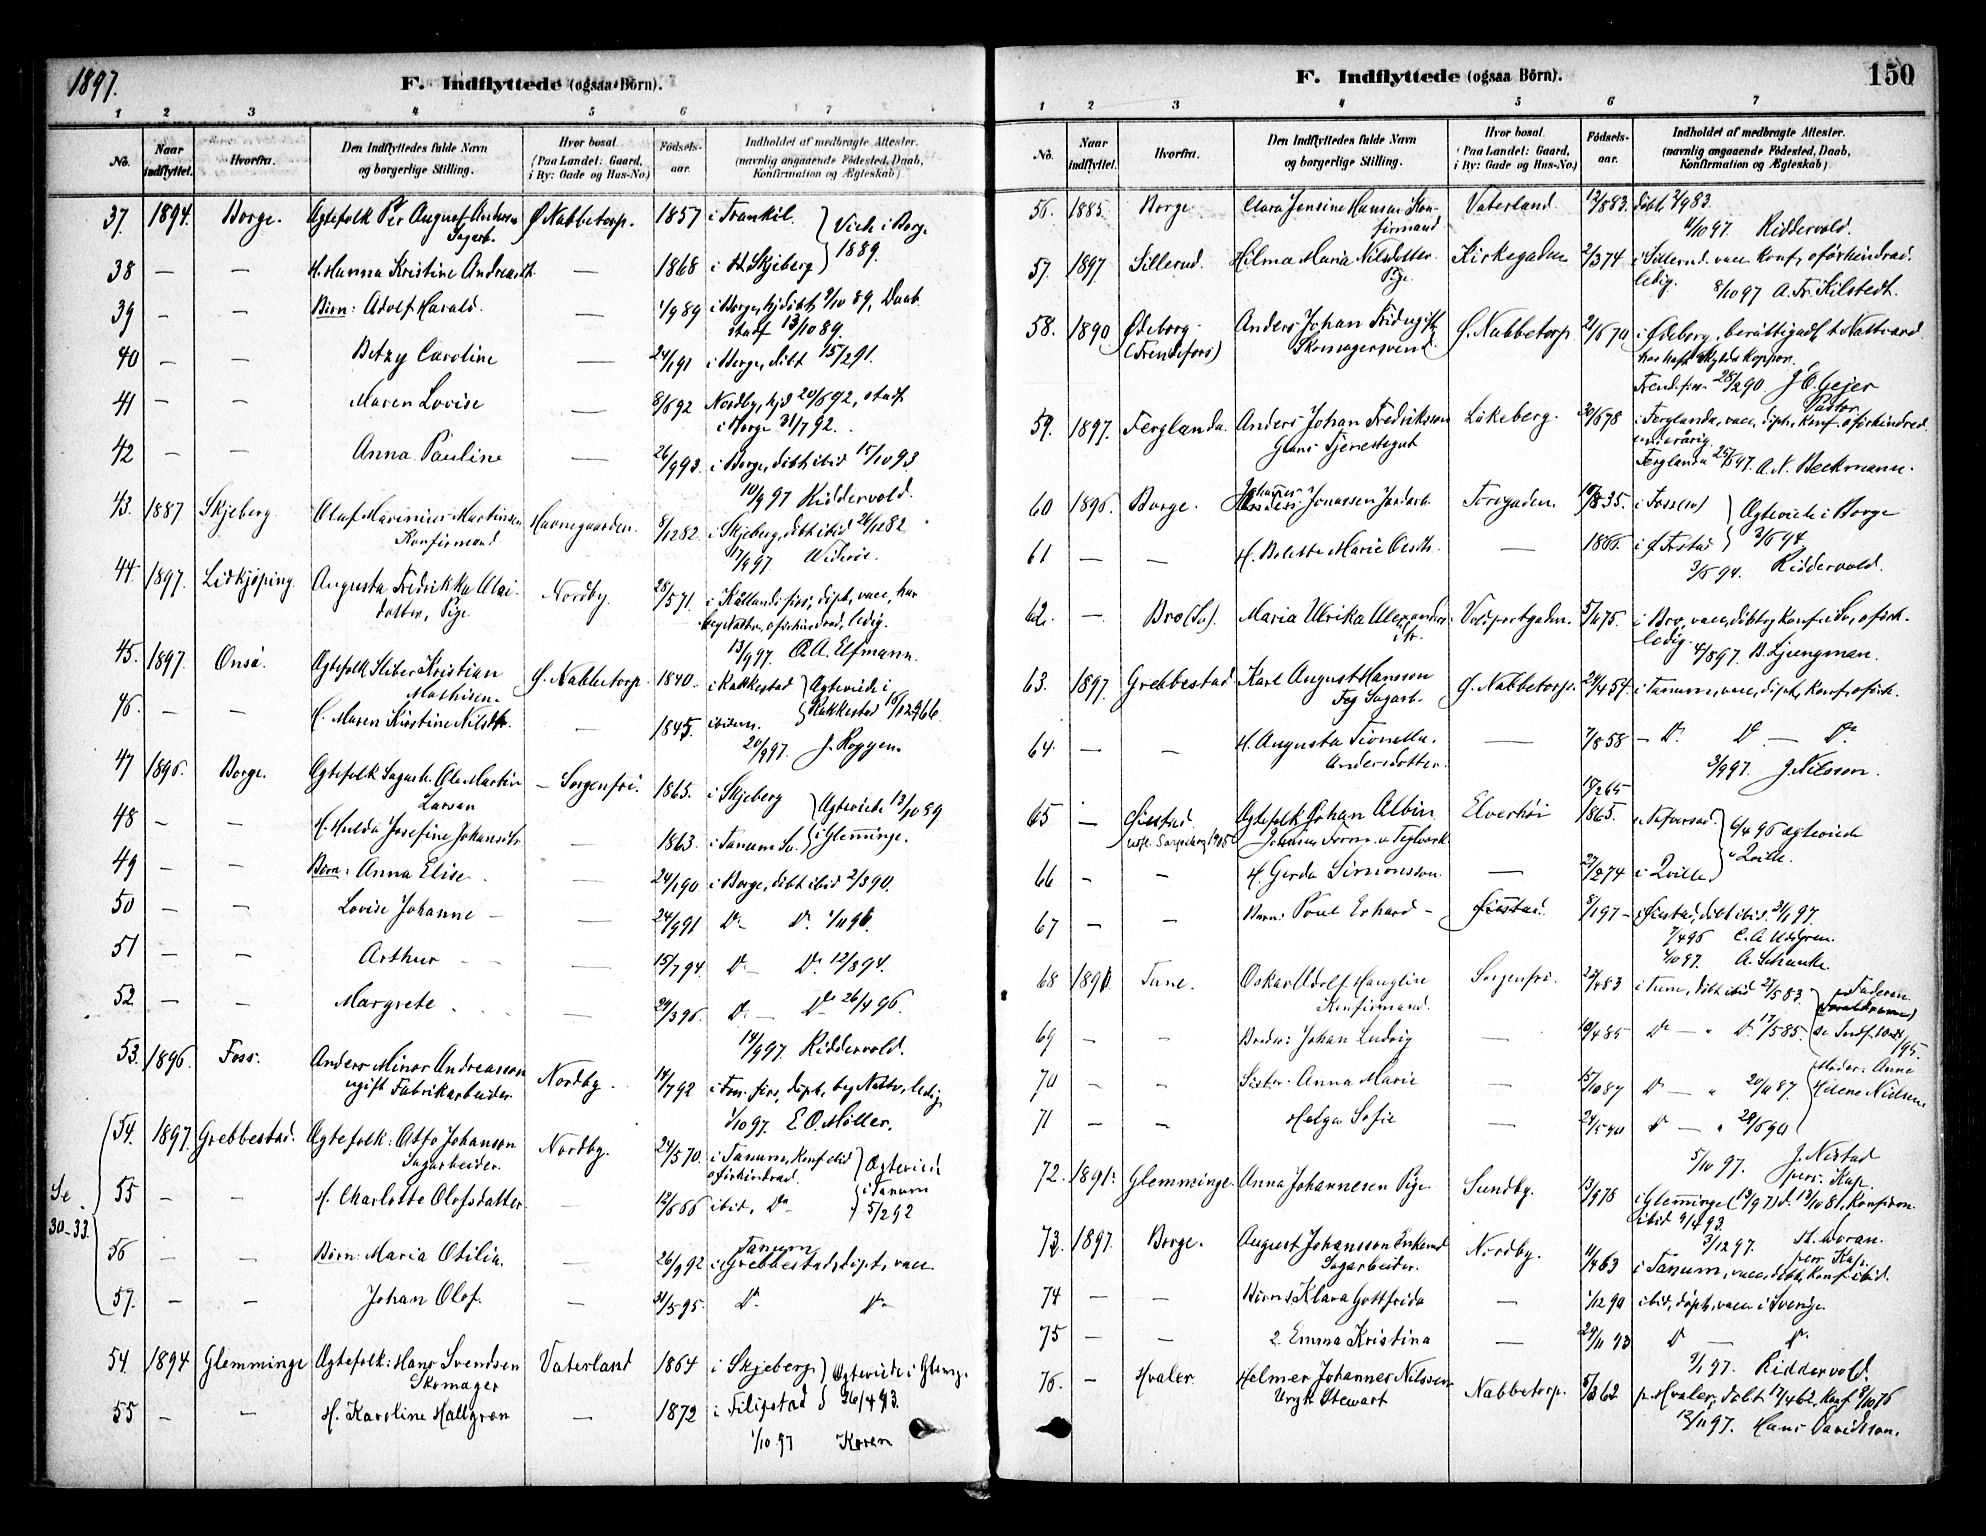 1897.
F. Indflyttede (ogsaa Börn).
1 2 3 4 5 6 7
No. Naar indflyttet. Hvorfra. Den Indflyttedes fulde Navn og borgerlige Stilling. Hvor bosat. (Paa Landet: Gaard, i By: Gade og Hus-No.) Födsels-aar. Indholdet af medbragte Attester. (navnlig angaaende Födested, Daab, Konfirmation og Ægteskab)
37 1894. Borge. Ægtefolk Per August Anders Sagarb. Ø. Nabbetorp. 1857 i Trankil. Viede i Borge 1889.
38 — — H. Hanna Kristine Andreasdt — 1868 i Skjeberg
39 — — Börn: Adolf Harald. — 1/9 89 i Borge, hjdöbt 9/10 89, Daab stadf 13/10 89.
40 — — Betzy Caroline — 24/1 91 i Borge, döbt 15/2 91.
41 — — Maren Lovise — 8/6 92 Nordby, hjd 20/6 92, stadf i Borge 31/7 92.
42 — — Anna Pauline — 26/9 93. i Borge, döbt ibid 15/10 93
10/9 97 Riddervold.
43. 1887 Skjeberg. Oluf Marinius Martinsen Konfirmand Havnegaarden. 8/12 82. i Skjeberg, döbt ibid 26/12 82
17/9 97
44. 1897. Lidkjöping. Augusta Fredrikka Olai-dotter, Pige Nordby. 28/5 71. i Kållands förs, döpt, vacc, har beg Nattv, oförhindrad, ledig.
13/9 97. A. Elfmann.
45. 1897. Onsö. Ægtefolk Sliber Kristian Mathisen Ø. Nabbetorp. 1840. i Rakkestad Ægteviede i Rakkestad 18/12 66.
46. — — H. Maren Kirstine Nilsdtr. — 1845 ibidem.
20/9 97. J. Roggen.
47 1896. Borge. Ægtefolk Sagarb. Ole Martin Larsen — Sorgenfri. 1865. i Skjeberg Ægteviede 13/10 89 i Glemminge.
48 — — H. Hulda Josefine Johansdtr 1863. i Tanum Sv.
49 — — Börn: Anna Elise. — 24/1 90 i Borge, döbt ibid 2/3 90.
50 — — Lovise Johanne — 24/9 91 Do Do 1/11 91.
51 — — Arthur — 15/7 94. Do Do 12/8 94.
52 — — Margrete — 29/3 96. Do — Do 26/4 96.
14/9 97 Riddervold.
53. 1896 Foss. Anders Minor Andreasson ugift Fabrikarbeider Nordby. 14/7 92 i Foss förs, döpt, beg Nattv, ledig
1/10 97. E. O. Möller.
54. 1897. Grebbestad. Ægtefolk: Otto Johanson Sagarbeider. Nordby. 24/5 70. i Tanum, Konf ibid oförhindrad. Ægteviede i Tanum 5/2 92
Se 30-33.
55 — — H. Charlotte Olofsdatter — 12/6 66 ibid, Do
56 — — Börn: Maria Otilia. — 26/9 92 i Tanum Grebbestads, döpt, vacc.
57. — — Johan Olof. — 31/5 95. Do Do
54. 1894 Glemminge Ægtefolk: Hans Svendsen Skomager Vaterland 1864 i Skjeberg Ægteviede i Glemg. 26/4 93.
55 — — H. Karoline Hallgren — 1872 i Filipstad
1/10 97 Koren
F. Indflyttede (ogsaa Börn).
150
1 2 3 4 5 6 7
No. Naar indflyttet. Hvorfra. Den Indflyttedes fulde Navn og borgerlige Stilling. Hvor bosat. (Paa Landet: Gaard, i By: Gade og Hus-No.) Födsels-aar. Indholdet af medbragte Attester. (navnlig angaaende Födested, Daab, Konfirmation og Ægteskab).
56. 1885. Borge Clara Jensine Hansen Konfirmand Vaterland. 12/8 83. döbt 2/9 83.
11/10 97 Riddervold.
57. 1897 Sillerud. Hilma Maria Nilsdotter Pige. Kirkegaden 2/3 74 i Sillerud. vacc. konf, oförhindrad. ledig.
8/10 97 A. Fr. Kilstedt.
58. 1890 Ødeborg (Frendefors) Anders Johan Skomagersvend Ø. Nabbetorp 21/6 70 i Ödeborg, berättigad t Nattvard har haft skyddskoppor.
Frendefors 28/2 90 J. O. Gejer Pastor.
59. 1897. Ferglanda. Anders Johan Fredriksson Glans Tjenestegut Lökeberg. 30/6 78 i Ferglanda, vacc, döpt, konf. oförhindred
Ferglanda 25/ 97. A. N. Beckmann.
60 1896. Borge. Johannes Jonassen Jordarb. Torvgaden. 10/8 35. i Foss (Sv) Ægteviede i Borge 3/6 94.
61 — — H. Bolette Marie — 1866. i
3/6 94. Riddervold.
62. — Bro (Sv). Maria Ulrika Alexanders-dtr. Voldportgaden. 5/11 75. i Bro, vacc, döbt og konf. oförh. ledig.
4/8 97. B. Ljungman.
63. 1897. Grebbestad Karl August Hansson Fog Sagarb. Ø. Nabbetorp. 24/4 54. i Tanum, vacc, döpt, konf, oförh.
64. — — H. Augusta Andersdotter. — 7/8 58 — Do Do — Do
3/9 97. J. Nilsson.
65 — Ægtefolk Johan Albin Johansen Form. v. Teglverk Elverhöi 18/2 65 1865. Ægteviede 6/4 96 i Qville.
66 — — H. Gerda Simonsson. — 27/2 74 i Qville
67 — — Barn: Poul Erhard — 8/1 97 — döbt ibid. 31/1 97.
7/4 96
2/10 97. A. Schancke.
68 1891. Tune. Oskar Adolf Hauglin Konfirmand. Sorgenfri. 22/4 83 i Tune, döbt ibid 27/5 83. Faderen
69 — Broder: Johan Ludvig — 10/4 85 Do — " Do 17/5 85.
70 — Söster: Anna Marie — 15/10 87 Do — " 20/11 87. Moder: Anne Helene Nielsen
71 — Helga Sofie — 24/5 90 Do — " 29/6 90
5/10 97. J. Nistad pers. Kap.
72. 1891. Glemminge. Anna Johannesen Pige. Sundby. 13/9 78 i Glemminge (13/9 7) d. 13/10 81, Konfirm. ibid 9/4 93.
3/12 97. pers. Kap.
73. 1897. Borge. August Johansson Enkemd Sagarbeider. Nordby. 11/4 63 i Tanum, vacc, döbt, Konf ibid.
74 — — Börn: 1 Klara Gottfrida — 1/12 90 ibid, döpt, vacc i Sverige
75 — — 2. Emma Kristina — 24/11 93 Do — Do
9/1 97. Riddervold.
76. — Hvaler Helmer Johannes Nilssen Ungk. Stewart Nabbetorp. 5/3 62 p. Hvaler, döbt 17/4 62, konf 8/10 76
12/11 97. Hans Davidsson.